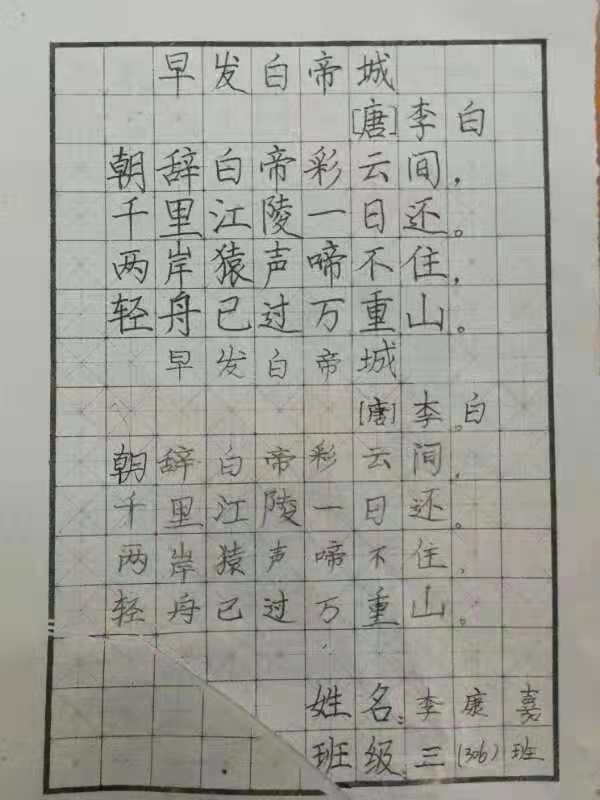 早发白帝城
[唐]李白
朝辞白帝彩云间,
千里江陵一日还。
两岸猿声啼不住,
轻舟已过万重山。
早发白帝城
[唐]李白
朝辞白帝彩云间,
千里江陵一日还。
两岸猿声啼不住,
轻舟已过万重山。
姓名:李康嘉
班级:三(306)班